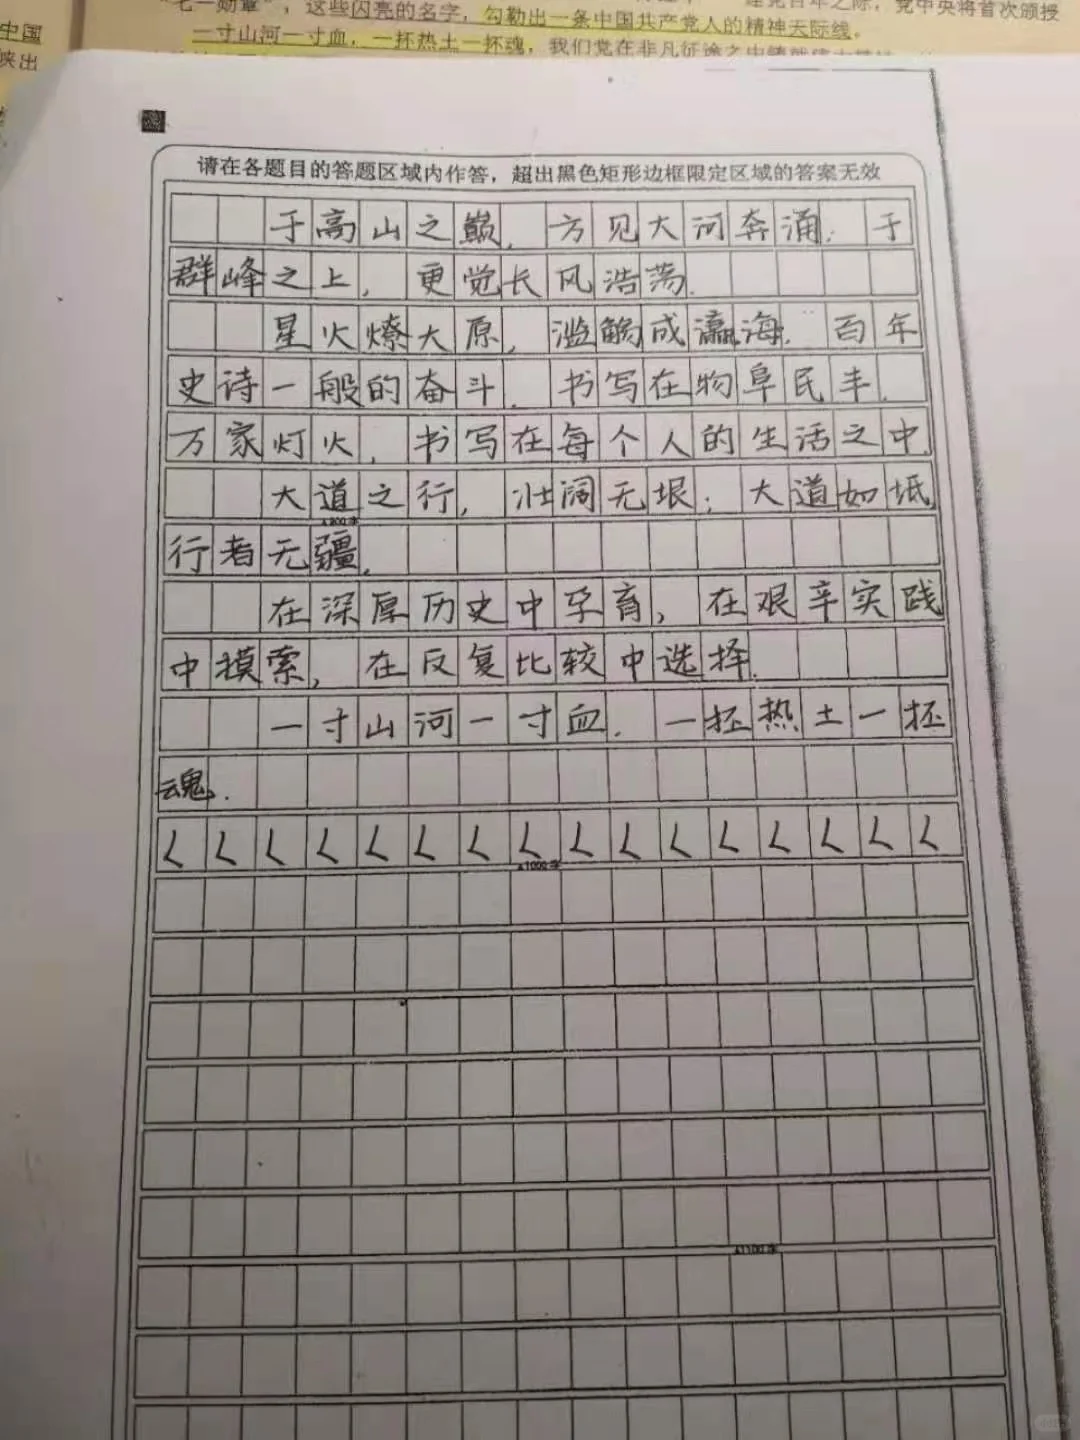 "七一勋章"，这些闪亮的名字，勾勒出一条中国共产党人的精神天际线。
建党百年之际，党中央将首次颁授
一寸山河一寸血，一抔热土一抔魂，我们党在非凡征途之中
中国
峡出
请在各题目的答题区域内作答，超出黑色矩形边框限定区域的答案无效
于高山之巅，方见大河奔涌；于
群峰之上，更觉长风浩荡.
星火燎大原，滥觞成瀛海.百年
史诗一般的奋斗.书写在物阜民丰.
万家灯火，书写在每个人的生活之中.
大道之行，壮阔无垠；大道如坻，
▲900字
行者无疆.
在深厚历史中孕育，在艰辛实践
中摸索，在反复比较中选择.
一寸山河一寸血.一抔热土一抔
魂.
く く く く く く く く く く く く く く く く
▲1000字
▲1100字